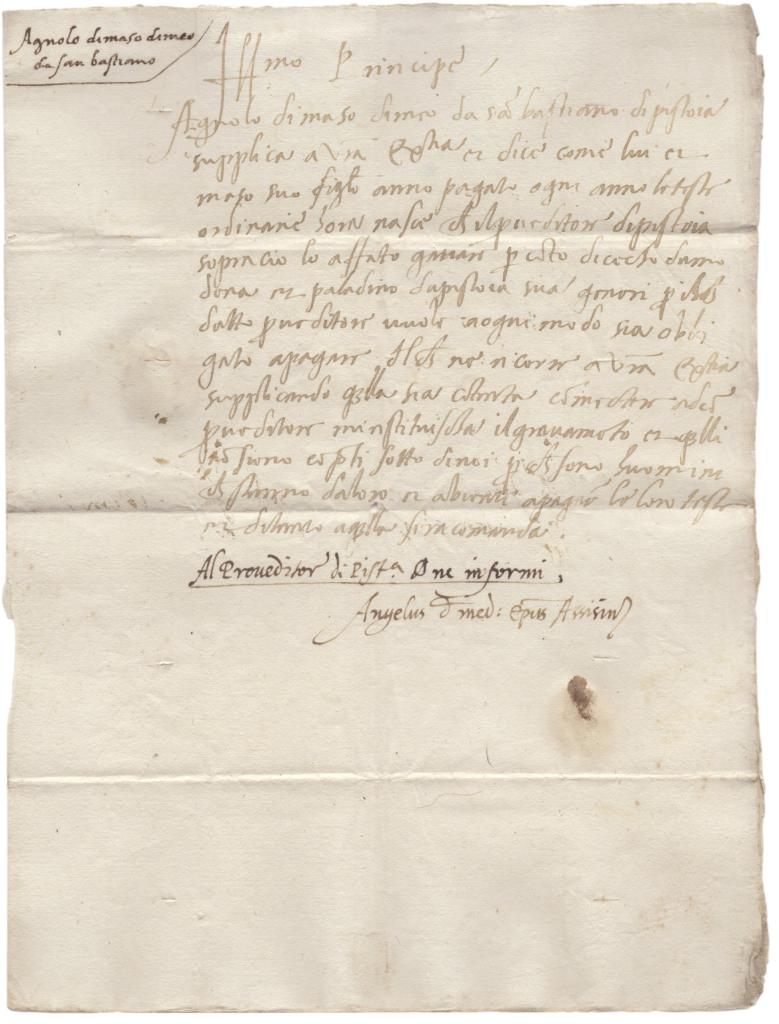 Agnolo dimaso dimeo
da san bastiano
Ill mo Principe
Agnolo di maso dimeo da são bastiano di pistoia
supplica a Vra Ecctia et dice come lui et
maso suo figlo anno pagato ogni anno le teste
ordinarie hora nasce che il pueditore di pistoia
sopracio lo affato gravare p cõto di cecho damo
et paladino da pistoia sua generi p il che
datto pueditore vuole a ogni modo sia obli
gato apagare, et che ne ricorre a Vra Ecctia
supplicando qlla sia cõtenta cõmectere adco
pueditore il gravamẽto et qlli
nõ sieno cõpsi sotto di noi p che sono huomini
che stanno da loro et apagare le loro teste
et di tanto aqlla si racomanda.
Al Proveditor di Pist.a che ne informi,
Angelus d med: epus Assisin